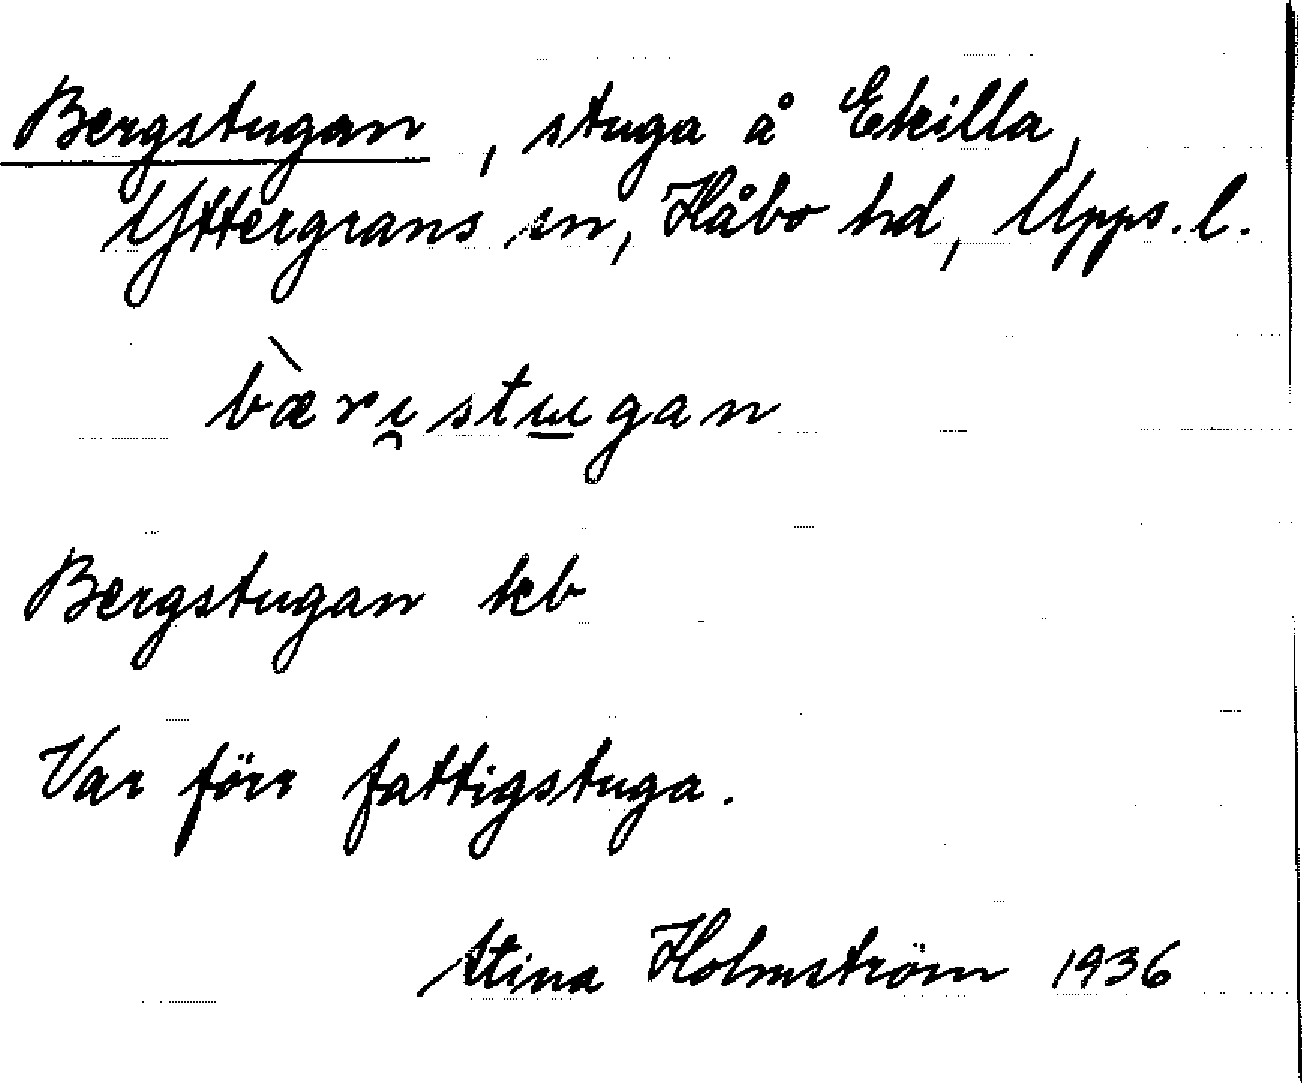 Bergstugan, stuga å Ekilla,
Yttergrans sn, Håbo hd, Upps. l.
bæ̀rı̯stɯgan
Bergstugan kb
Var förr fattigstuga.
Stina Holmström 1936